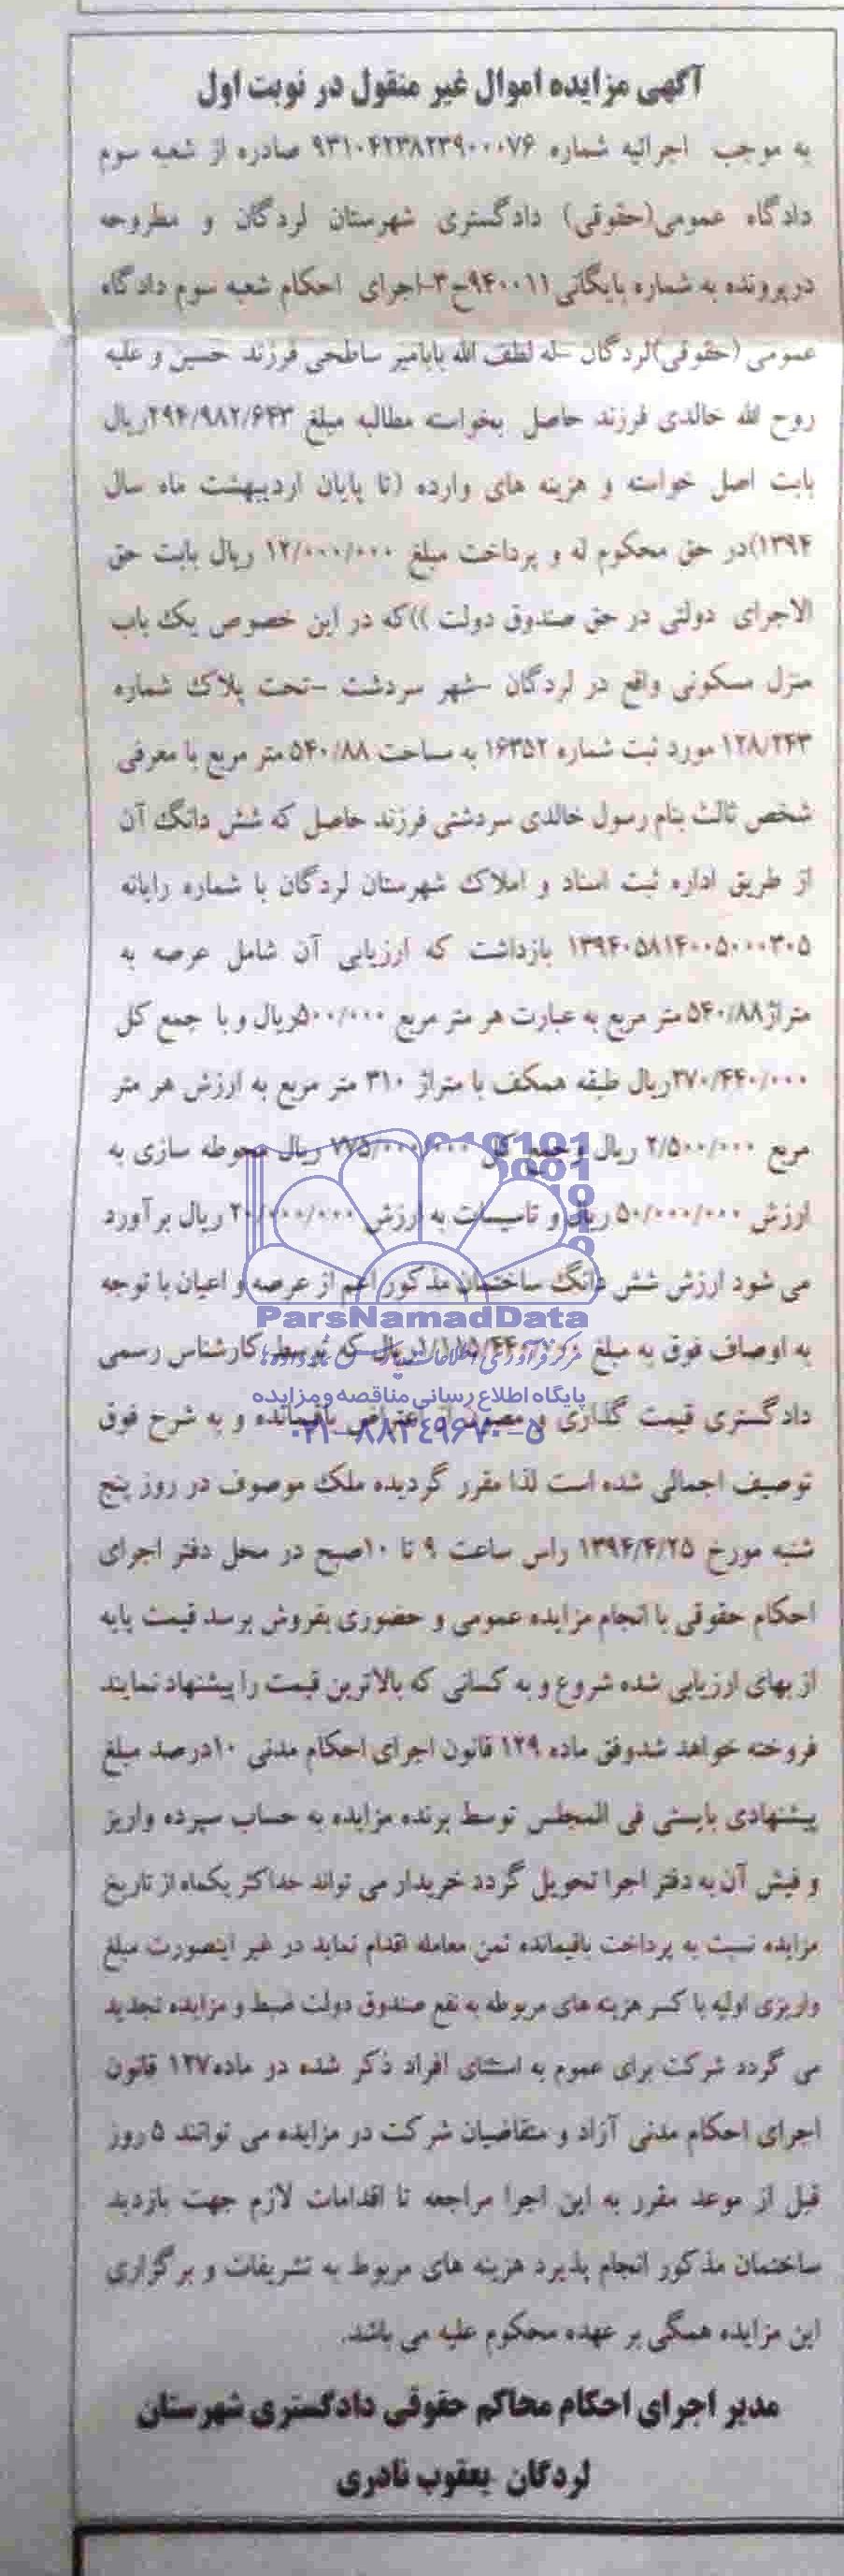 آگهی مزایده اموال غیر منقول در نوبت اول
به موجب اجرائیه شماره ۹۳۱۰۴۲۳۸۲۳۹۰۰۰۷۶ صادره از شعبه سوم
دادگاه عمومی(حقوقی) دادگستری شهرستان لردگان و مطروحه
درپرونده به شماره بایگانی ۹۴۰۰۱۱ج۳-اجرای احکام شعبه سوم دادگاه
عمومی (حقوقی)لردگان -له لطف الله بابامیر ساطحی فرزند حسین و علیه
روح الله خالدی فرزند حاصل بخواسته مطالبه مبلغ ۲۹۴/۹۸۲/۶۴۳ریال
بابت اصل خواسته و هزینه های وارده (تا پایان اردیبهشت ماه سال
۱۳۹۴)در حق محکوم له و پرداخت مبلغ ۱۲/۰۰۰/۰۰۰ ریال بابت حق
الاجرای دولتی در حق صندوق دولت ))که در این خصوص یک باب
منزل مسکونی واقع در لردگان -شهر سردشت -تحت پلاک شماره
۱۲۸/۲۴۳ مورد ثبت شماره ۱۶۳۵۲ به مساحت ۵۴۰/۸۸ متر مربع با معرفی
شخص ثالث بنام رسول خالدی سردشتی فرزند حاصل که شش دانگ آن
از طریق اداره ثبت اسناد و املاک شهرستان لردگان با شماره رایانه
۱۳۹۴۰۵۸۱۴۰۰۵۰۰۰۳۰۵ بازداشت که ارزیابی آن شامل عرصه به
متراژ۵۴۰/۸۸ متر مربع به عبارت هر متر مربع ۵۰۰/۰۰۰ریال و با جمع کل
۲۷۰/۴۴۰/۰۰۰ریال طبقه همکف با متراژ ۳۱۰ متر مربع به ارزش هر متر
مربع ۲/۵۰۰/۰۰۰ ریال وجمع کل ۷۷۵/۰۰۰/۰۰۰ ریال محوطه سازی به
ارزش ۵۰/۰۰۰/۰۰۰ ریال و تاسیسات به ارزش ۲۰/۰۰۰/۰۰۰ ریال برآورد
می شود ارزش شش دانگ ساختمان مذکور اعم از عرصه و اعیان با توجه
ParsNamadData
به اوصاف فوق به مبلغ ۱/۱۱۵/۴۴۰/۰۰۰ریال که توسط کارشناس رسمی
مرکز فرآوری اطلاعات پارس نماد داده‌ها
پایگاه اطلاع رسانی مناقصه و مزایده
دادگستری قیمت گذاری و مصون از اعتراض باقیمانده و به شرح فوق
۰۲۱-۸۸۳۴۹۶۷۰-۵
توصیف اجمالی شده است لذا مقرر گردیده ملک موصوف در روز پنج
شنبه مورخ ۱۳۹۴/۴/۲۵ راس ساعت ۹ تا ۱۰صبح در محل دفتر اجرای
احکام حقوقی با انجام مزایده عمومی و حضوری بفروش برسد قیمت پایه
از بهای ارزیابی شده شروع و به کسانی که بالاترین قیمت را پیشنهاد نمایند
فروخته خواهد شدوفق ماده ۱۲۹ قانون اجرای احکام مدنی ۱۰درصد مبلغ
پیشنهادی بایستی فی المجلس توسط برنده مزایده به حساب سپرده واریز
و فیش آن به دفتر اجرا تحویل گردد خریدار می تواند حداکثر یکماه از تاریخ
مزایده نسبت به پرداخت باقیمانده ثمن معامله اقدام نماید در غیر اینصورت مبلغ
واریزی اولیه با کسر هزینه های مربوطه به نفع صندوق دولت ضبط و مزایده تجدید
می گردد شرکت برای عموم به استثنای افراد ذکر شده در ماده۱۲۷ قانون
اجرای احکام مدنی آزاد و متقاضیان شرکت در مزایده می توانند ۵ روز
قبل از موعد مقرر به این اجرا مراجعه تا اقدامات لازم جهت بازدید
ساختمان مذکور انجام پذیرد هزینه های مربوط به تشریفات و برگزاری
این مزایده همگی بر عهده محکوم علیه می باشد.
مدیر اجرای احکام محاکم حقوقی دادگستری شهرستان
لردگان یعقوب نادری